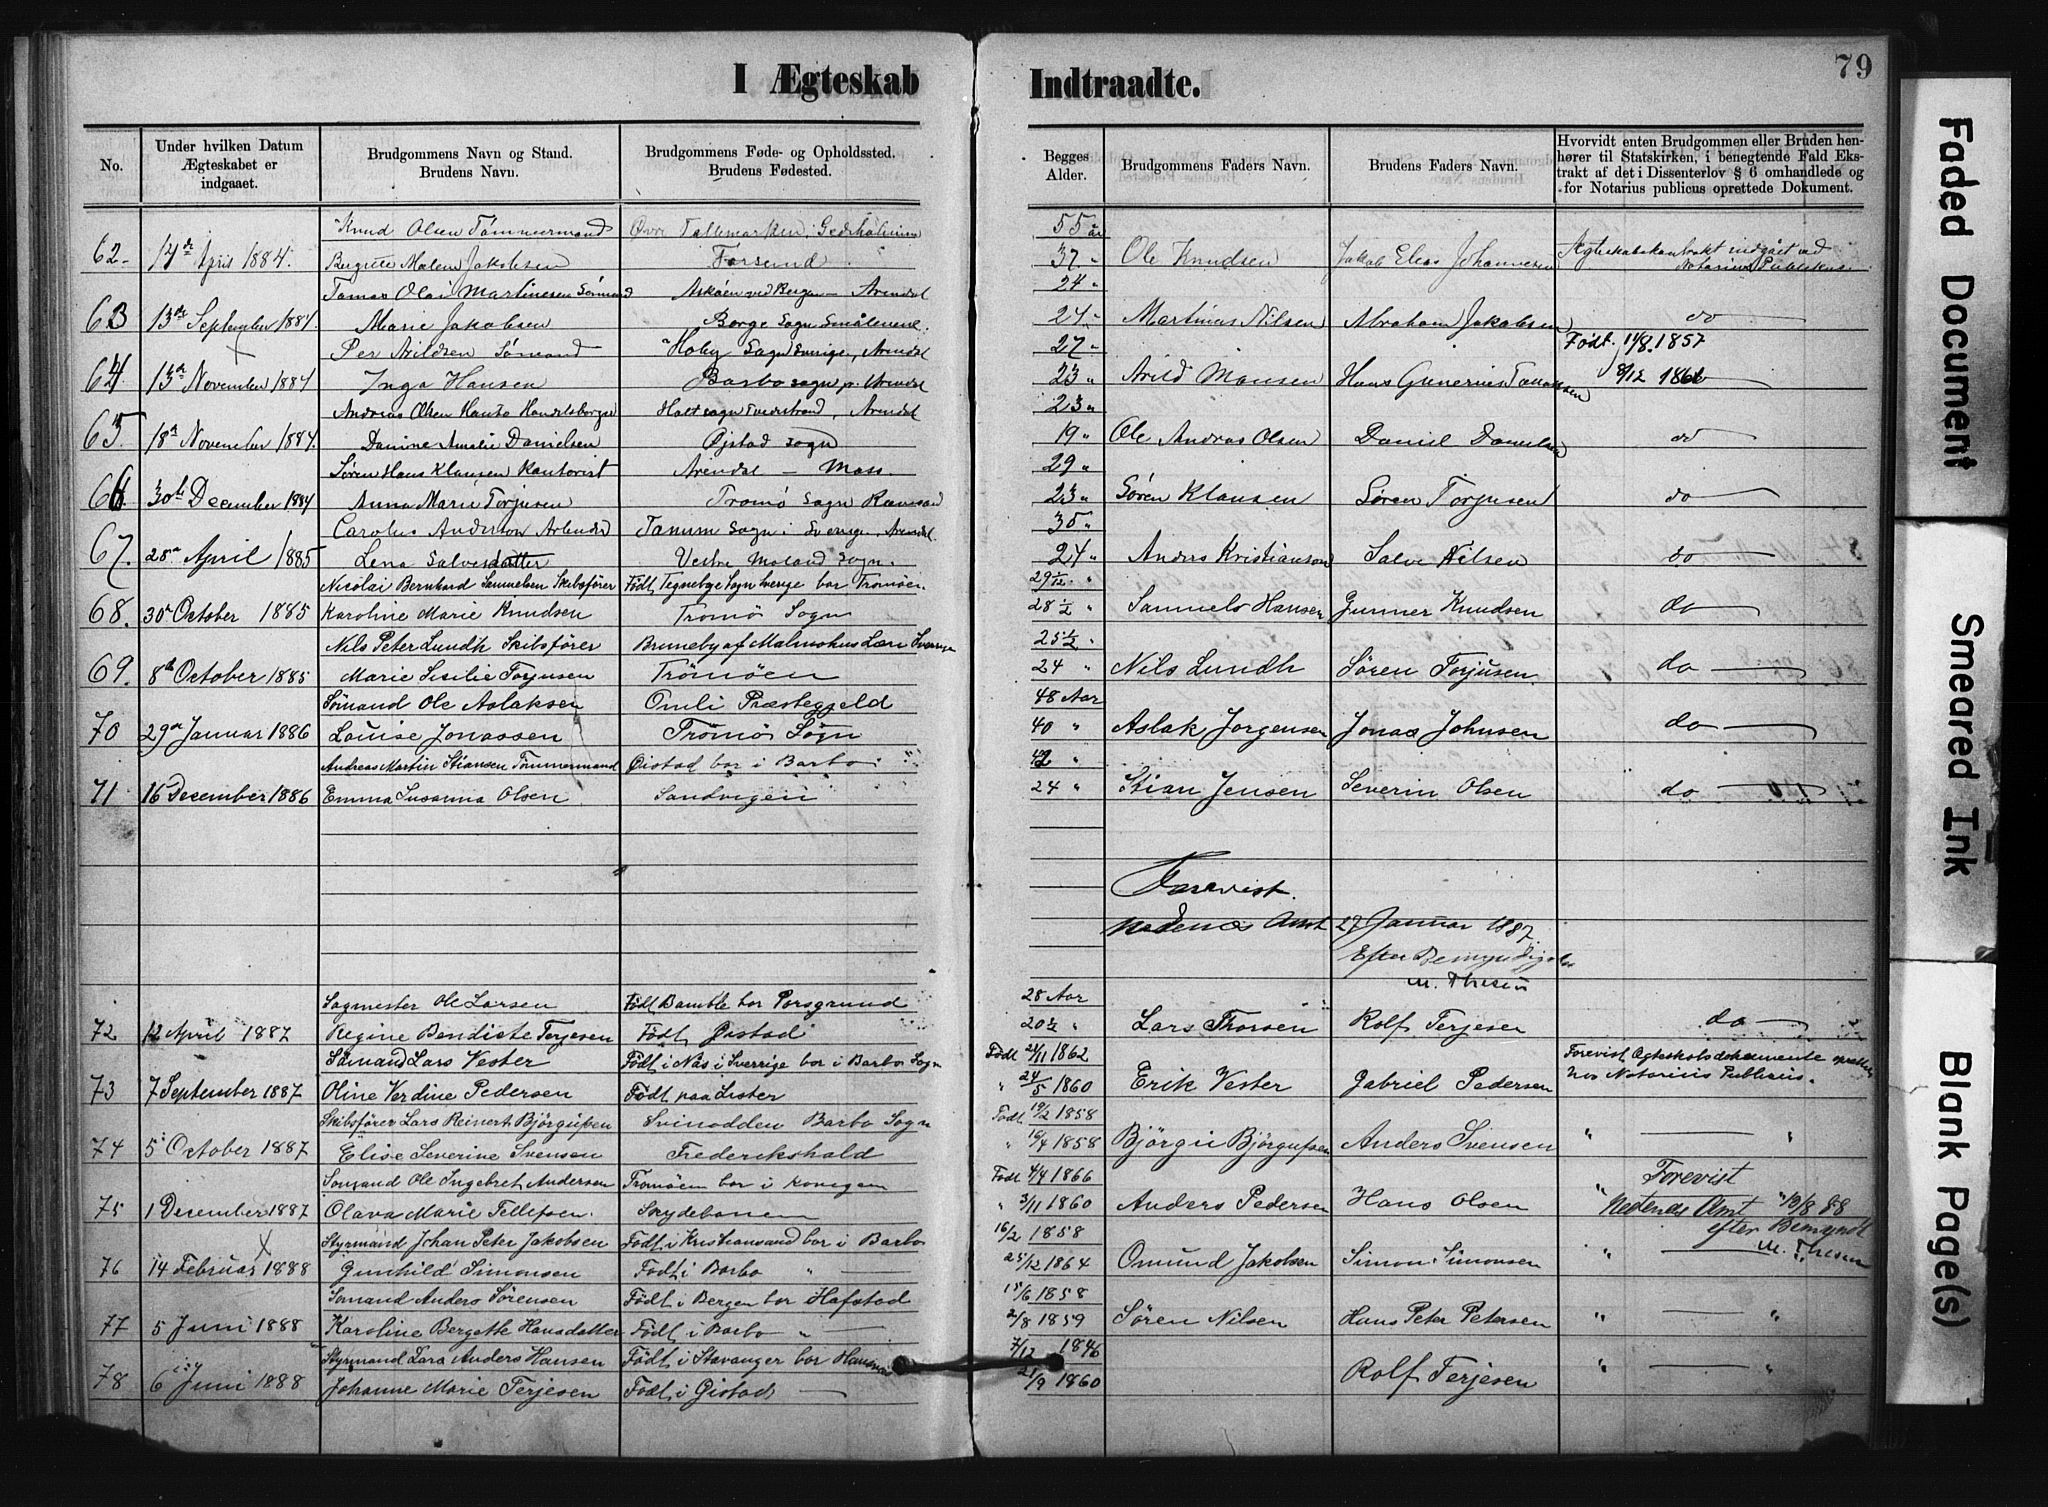 79
I Ægteskab Indtraadte.
No. | Under hvilken Datum Ægteskabet er indgaaet. | Brudgommens Navn og Stand. Brudens Navn. | Brudgommens Føde- og Opholdssted. Brudens Fødested. | Begges Alder. | Brudgommens Faders Navn. | Brudens Faders Navn. | Hvorvidt enten Brudgommen eller Bruden henhører til Statskirken, i benegtende Fald Ekstrakt af det i Dissenterlov § 6 omhandlede og for Notarius publicus oprettede Dokument.
Knud Olsen Tømmermand | 55 år
62. | 14de April 1884. | Malene Jakobsen | Forsund | 37 " | Ole Knudsen | Jakob Elias Johannesen | Ægteskabskontrakt indgået ved Notarius Publikus.
Tomas Olai Martinesen Sømand | Askøen ved Bergen — Arendal | 24 "
63 | 13de September 1884. | Marie Jakobsen | Borge Sogn Smålenene. | 24 " | Martinus Nilsen | Abraham Jakobsen | do
Per Arildsen Sømand | Hoby Sogn Sverige, Arendal | 27 " | Født 11/8. 1857
64 | 13de November 1884 | Inga Hansen | Barbo sogn p. Arendal | 23 " | Arild Månsen | Hans Gunerius Tomassen | 8/12 1861
Andreas Olsen Handelsborger | Holt sogn Tvedestrand, Arendal | 23 "
65. | 18de November 1884. | Danine Amalie Danielsen | Øjstad sogn | 19 " | Ole Andreas Olsen | Daniel Danielsen | do
Søren Hans Klausen Kontorist | Arendal — Moss | 29 "
66 | 30te December 1884 | Anna Marie Torjusen | Tromø Sogn Revesand | 23 " | Søren Klausen | Søren Torjusen | do
Carolus Anderson | Tanum Sogn i Sverige, Arendal. | 35 "
67. | 28de April 1885 | Lena Salvesdatter | Vestre Moland Sogn. | 24 " | Anders Kristianson | Salve Nilsen | do
Nicolai Bernhard Samuelsen Skibsfører | Født Tegneby Sogn Sverige bor Tromøen | 29 1/12 "
68. | 30 October 1885 | Karoline Marie Knudsen | Tromø Sogn | 28 1/2 " | Samuels Hansen | Gunner Knudsen | do
Nils Peter Lundh Skibsfører | Brunneby af Malmøhus Læn Sverige | 25 1/2 "
69. | 8de October 1885 | Marie Sisilie Torjusen | Trömöen | 24 " | Nils Lundh | Sören Torjusen | do
Sømand Ole Aslaksen | Omli Præstegjeld | 48 Aar
70 | 29de Januar 1886 | Louise Jonassen | Trömö Sogn | 40 " | Aslak Jorgensen | Jonas Johnsen | do
Andreas Martin Stiansen Tømmermand | Øistad bor i Barbo | 42 "
71 | 16 December 1886 | Emma Susanna Olsen | Sandvigen | 24 " | Stian Jensen | Severin Olsen | do
Forevist.
Nedenes Amt 27 Januar 1887
Efter Bemyndigelse
M. Thesen
Sagmester Ole Larsen | Født Bamble bor Porsgrund | 28 Aar
72 | 12 April 1887 | Regine Bendicte Terjesen | Født Øistad | 20 1/2 " | Lars Thorsen | Rolf Terjesen | do
Sømand Lars Vester | Født i Näs i Sverrige bor i Barbo Sogn | Født 21/11 1862 | Forevist Ægteskabsdokumente oprettet
73 | 7 September 1887 | Oline Verdine Pedersen | Født paa Lister | " 24/5 1860 | Erik Vester | Gabriel Pedersen | hos Notarius Publicus.
Skibsfører Lars Reinert Björgufsen | Svinodden Barbo Sogn | Født 19/2 1858
74 | 5 October 1887 | Elise Severine Svensen | Frederikshald | " 16/4 1858 | Björgu Björgufsen | Anders Svensen | " — "
Sømand Ole Ingebret Andersen | Tromöen bor i Kovigen | Født 4/4 1866 | Forevist
75 | 1 December 1887 | Olava Marie Tellefsen. | | " 3/11 1860 | Anders Pedersen | Hans Olsen | " Nedenes Amt 10/8 88
Styrmand Johan Peter Jakobsen | Født i Kristiansand bor i Barbo | 16/2 1858 | efter Bemyndt
76 | 14 Februar 1888 | Gunhild Simonsen | Født i Barbo " | 25/12 1864 | Omund Jakobsen | Simon Simonsen | " — M. Thesen
Sømand Anders Sørensen | Født i Bergen bor Hafstad | 15/6 1858
77 | 5 Juni 1888 | Karoline Bergette Hansdatter | Født i Barbo " | 2/8 1859 | Søren Nilsen | Hans Peter Petersen | " — "
Styrmand Lars Anders Hansen | Født i Stavanger bor | 7/12 1846
78 | 6 Juni 1888 | Johanne Marie Terjesen | Født i Øistad | 21/9 1860 | Rolf Terjesen | " — "
Faded Document
Smeared Ink
Blank Page(s)